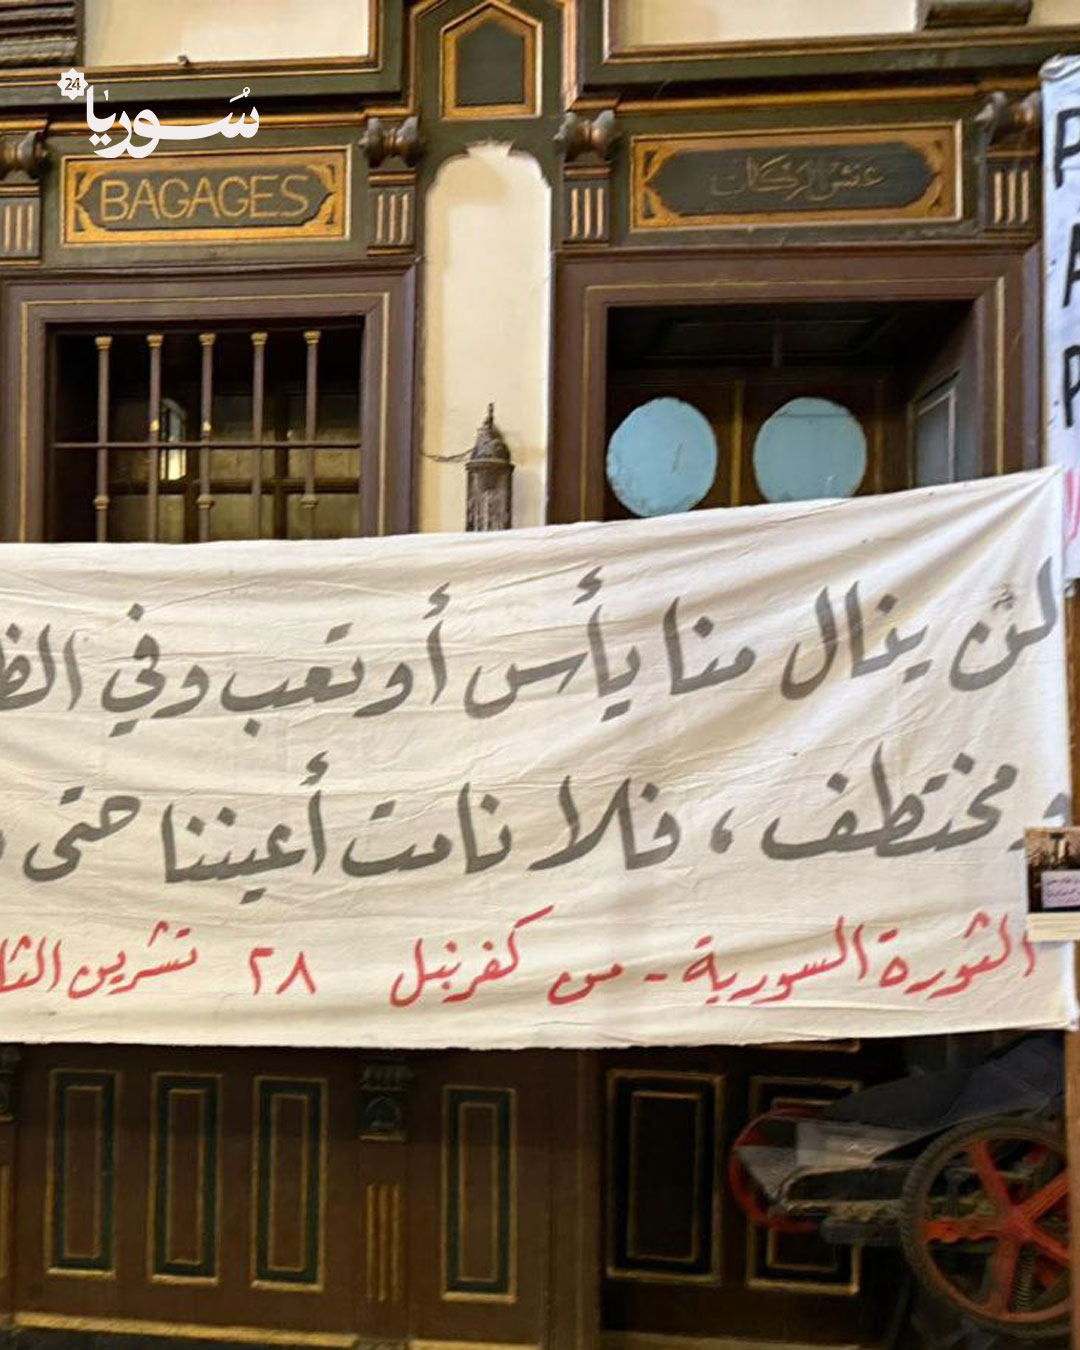 24
سُوريا
BAGAGES
P
A
P
لن ينال منا يأس أو تعب وفي
ومختطف، فلا نامت أعيننا حتى
الثورة السورية - من كفرنبل ٢٨ تشرين